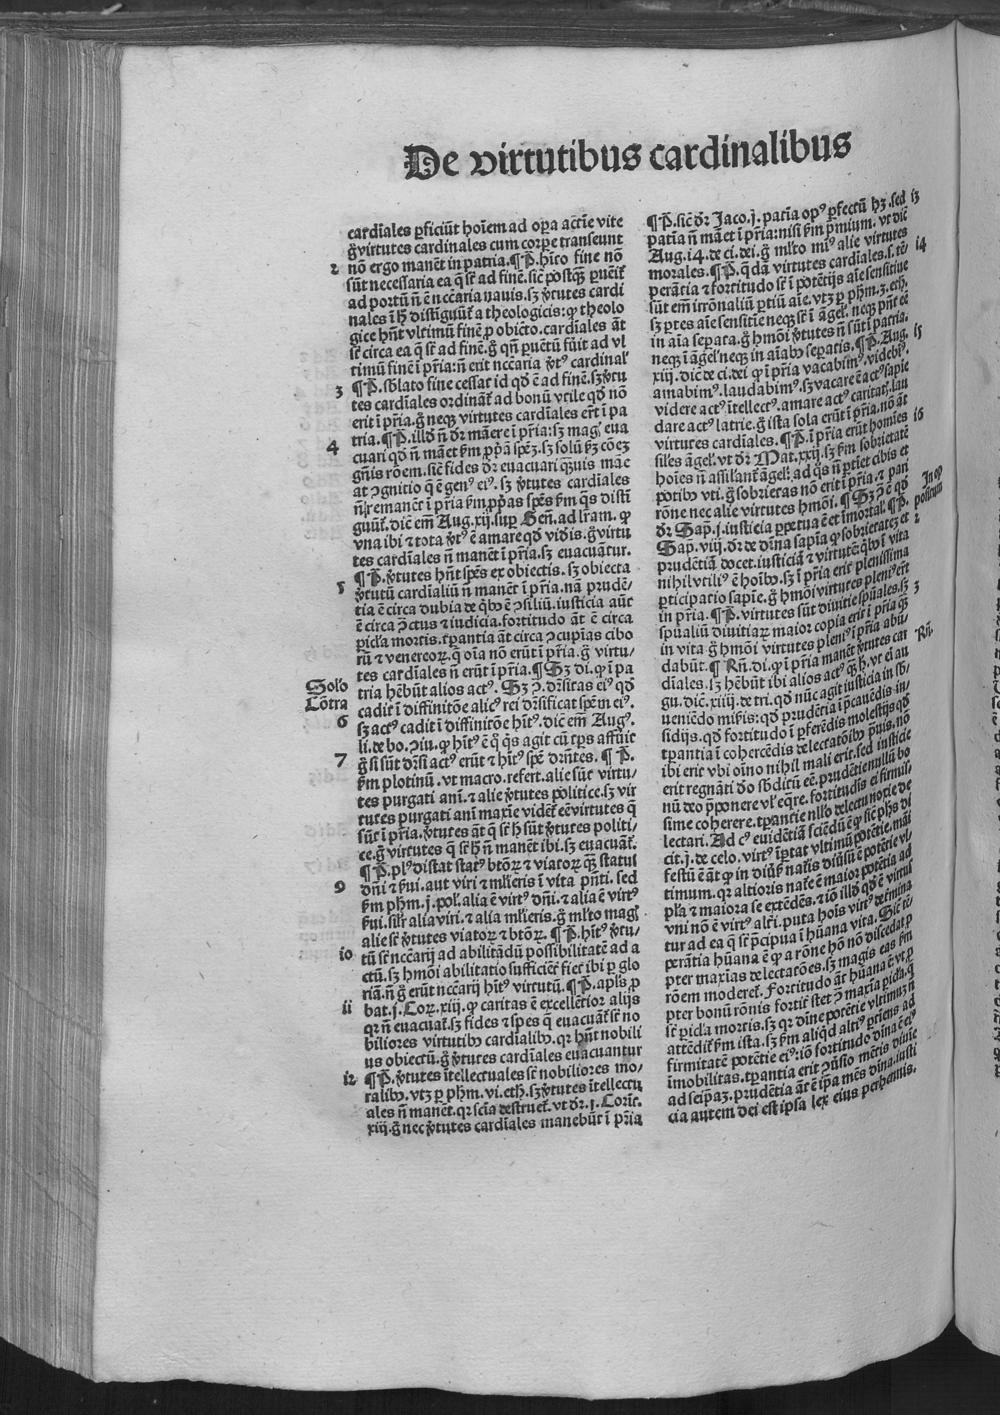 De virtutibus cardinalibus
cardīales ꝑficiūt hoīem ad oꝑa actīe vite
ḡ virtutes cardinales cum corꝑe transeunt
2 nō ergo manēt in patria. ¶ P. hīto fine nō
sūt necessaria ea q̄ sūt ad finē. sic̄ postq̄ꝫ ꝑuēit̄
ad portū n̄ ē nccāria nauis. sꝫ v̄tutes cardi
nales ī h̄ distīguūt̄ a theologicis: ꝙ theolo
gice hn̄t vltimū finē ꝓ obiecto. cardiales āt
sūt circa ea q̄ sūt ad finē. ḡ qn̄ ꝑuētū fūit ad vl
timū finē ī pr̄ia: n̄ erit nccāria v̄tꝰ cardinal̓
3 ¶ P. sb̄lato fine cessat id qd̄ ē ad finē. sꝫ v̄tu
tes cardīales ordināt̄ ad bonū vtile qd̄ nō
erit ī pr̄ia. ḡ neqꝫ virtutes cardīales er̄t ī pa
4 tria. ¶ P. illd̄ n̄ dr̄ māere ī pr̄ia: sꝫ mag̓ eua
cuari qd̄ n̄ manet ẜm ꝓpr̄ā spēꝫ. sꝫ solū ẜꝫ cōeꝫ
gn̄is rōem. sic̄ fides dr̄ euacuari q̄ꝫuis mae
at ꝯgnitio q̄ ē genꝰ eiꝰ. sꝫ v̄tutes cardīales
n̄ remanēt ī pr̄ia ẜm ꝓp̄as spēs ẜm q̄s distī
guūt̄. dic̄ em̄ Aug. xij. suꝑ Gen̄. ad lr̄am. ꝙ
vna ibi ⁊ tota v̄tꝰ ē amare qd̄ vidis. ḡ virtu
tes cardīales n̄ manēt ī pr̄ia. sꝫ euacuātur.
5 ¶ P. v̄tutes hn̄t spēs ex obiectis. sꝫ obiecta
v̄tutū cardīaliū n̄ manēt ī pr̄ia. nā prudē/
tia ē circa dubia de q̄bꝰ ē ꝯsiliū. iusticia aūt
ē circa ꝯctus ⁊ iudicia. fortitudo āt ē circa
ꝑicl̄a mortis. tꝑantia āt circa ꝯcupīas cibo
rū ⁊ venereoꝝ. q̄ oīa nō erūt ī pr̄ia. ḡ virtu/
tes cardīales n̄ erūt ī pr̄ia. ¶ Sꝫ di. ꝙ ī pa
Solo tria hēbūt alios actꝰ. Sꝫ ꝯ. dr̄sitas eiꝰ qd̄
Cōtra cadit ī diffinitōe alicꝰ rei dr̄sificat spēm eiꝰ.
6 sꝫ actꝰ cadit ī diffinitōe hītꝰ. dic̄ em̄ Augꝰ.
li. de bo. ꝯiu. ꝙ hītꝰ ē q̄ q̄s agit cū tꝑs affuit̄
7 ḡ si sūt dr̄si actꝰ erūt ⁊ hītꝰ spē dr̄ntes. ¶ P.
ẜm plotinū. vt macro. refert. alie sūt virtu/
tes purgati ani. ⁊ alie v̄tutes politice. sꝫ vir
tutes purgati ani maxīe vident̄ eē virtutes q̄
sūt ī pr̄ia. v̄tutes āt q̄ sūt h̄ sūt v̄tutes politi/
ce. ḡ virtutes q̄ sūt h̄ n̄ manēt ibi. sꝫ euacuāt̄.
¶ P. plꝰ distat statꝰ btōꝝ ⁊ viatoꝝ q̄ꝫ status
9 dn̄i ⁊ ẜui. aut viri ⁊ ml̄ieris ī vita pn̄ti. sed
ẜm phm. j. pol̓. alia ē virtꝰ dn̄i. ⁊ alia ē virtꝰ
ẜui. sil̄r alia viri. ⁊ alia ml̄ieris. ḡ ml̄to mag̓
alie sūt v̄tutes viatoꝝ ⁊ btōꝝ. ¶ P. hītꝰ v̄tu/
10 tū sūt nccārij ad abilitādū possibilitatē ad a
ctū. sꝫ hmōi abilitatio sufficiēt̄ fiet ibi ꝑ glo
riā. n̄ ḡ erūt nccārij hītꝰ virtutū. ¶ P. apl̄s ꝓ
11 bat. j. Coꝝ. xiij. ꝙ caritas ē excellētior alijs
qꝛ n̄ euacuat̄. sꝫ fides ⁊ spes q̄ euacuāt̄ sūt no
biliores virtutibꝰ cardīalibꝰ. qꝛ hn̄t nobili
us obiectū. ḡ v̄tutes cardīales euacuantur
12 ¶ P. v̄tutes ītellectuales sūt nobiliores mo/
ralibꝰ. vtꝫ ꝑ phm. vi. eth. sꝫ v̄tutes ītellectu
ales n̄ manēt. qꝛ scīa destruet̄. vt dr̄. j. Corīt.
xiij. ḡ nec v̄tutes cardīales manebūt ī pr̄ia
¶ P. sic̄ dr̄ Jaco. j. patīa opꝰ ꝑfectū hꝫ. sed 13
patīa n̄ manet ī pr̄ia: nisi ẜm p̄mium. vt dic̄
Aug. 14. de ci. dei. ḡ ml̄to miꝰ alie virtutes
morales. ¶ P. q̄dā virtutes cardīales. s. tē/ 14
ꝑantia ⁊ fortitudo sūt ī potētijs aīe sensitiue
sūt em̄ irrōnaliū ꝑtiū aīe. vtꝫ ꝑ phm. 3. eth.
sꝫ ꝑtes aīe sensitīe neqꝫ sūt ī āgel̓. neqꝫ pn̄t eē
in aīa seꝑata. ḡ hmōi v̄tutes n̄ sūt ī patria.
neqꝫ ī āgel̓ neqꝫ in aīabꝰ seꝑatis. ¶ P. Aug. 15
xxij. dic̄ de ci. dei ꝙ ī pr̄ia vacabimꝰ. videbīꝰ.
amabimꝰ. laudabimꝰ. sꝫ vacare ē actꝰ sapīe
videre actꝰ ītellectꝰ. amare actꝰ caritat̓. lau
dare actꝰ latrie. ḡ ista sola erūt ī pr̄ia. nō āt
virtutes cardīales. ¶ P. ī pr̄ia erūt homīes 16
sil̄es āgel̓. vt dr̄ Mat. xxij. sꝫ ẜm sobrietatē
hoīes n̄ assilant̄ āgel̓. ad q̄s n̄ ꝑtiet cibis et
potibꝰ vti. ḡ sobrietas nō erit ī pr̄ia. ⁊ pari
rōne nec alie virtutes hmōi. ¶ Sꝫ ꝯ ē qd̄ In op
dr̄ Sap̄. j. iusticia ꝑpetua ē et īmortal̓. ¶ P. positum
Sap. viij. dr̄ de dīna sapīa ꝙ sobrietatē et 2
prudētiā docet. iusticiā ⁊ virtutē q̄bꝰ ī vita
nihil vtiliꝰ ē hoībꝰ. sꝫ ī pr̄ia erit plenissima
ꝑticipatio sapīe. ḡ hmōi virtutes pleniꝰ er̄t
in pr̄ia. ¶ P. virtutes sūt diuitie spūales. sꝫ 3
spualiū diuitiaꝝ maior copia erit ī pr̄ia q̄ꝫ
in vita. ḡ hmōi virtutes pleniꝰ ī pr̄ia abū/
dabūt. ¶ Rn̄. di. ꝙ ī pr̄ia manēt v̄tutes car Rn̄.
dīales. sꝫ hēbūt ibi alios actꝰ q̄ꝫ h̄. vt ei au
gu. dic̄. xiiij. de tri. qd̄ nūc agit iusticia in sb̄/
ueniēdo mis̄is: qd̄ prudētia ī p̄cauēdis in/
sidijs. qd̄ fortitudo ī ꝑferēdis molestijs qd̄
tꝑantia ī cohercēdis delectatōibꝰ p̄uis. nō
ibi erit vbi oīno nihil mali erit. sed iusticie
erit regnāti dō sb̄ditū eē. prudētie nullū bo
nū deo p̄ponere vl̓ eq̄re. fortitudīs ei firmis/
sime coherere. tꝑantie nll̄o delectu noxie de
lectari. Ad cꝰ euidētiā sciēdū ē ꝙ sic̄ phs di
cit. j. de celo. virtꝰ īꝑtat vltimū potētie. māi
festū ē āt ꝙ in diūs̄ natis diūsū ē potētie vl/
timum. qꝛ altioris nat̄e ē maior potētia ad
pl̄a ⁊ maiora se extēdēs. ⁊ iō illd̄ qd̄ ē virtus
vni nō ē virtꝰ alt̄i. puta hoīs virtꝰ det̄mina
tur ad ea q̄ sūt p̄cipua ī hūana vita. Sic̄ tē/
ꝑantia hūana ē ꝙ a rōne hō nō discedat ꝓ
pter maxīas delectatōes. sꝫ magis eas ẜm
rōem moderet̄. Fortitudo āt hūana ē vt ꝓ
pter bonū rōnis fortit̄ stet ꝯ maxīa ꝑicl̄a. q̄
sūt ꝑicl̄a mortis. sꝫ qꝛ dīne potētie vltimuꝫ n̄
attēdit̄ ẜm ista. sꝫ ẜm aliqd̄ altiꝰ ꝑtinens ad
firmitatē potētie eiꝰ: iō fortitudo dīna ē eiꝰ
īmobilitas. tꝑantia erit ꝯūsio mētis dīuīe
ad seip̄aꝫ. prudētia āt ē ip̄a mēs dīna. iusti
cia autem dei est ipsa lex eius perhennis.